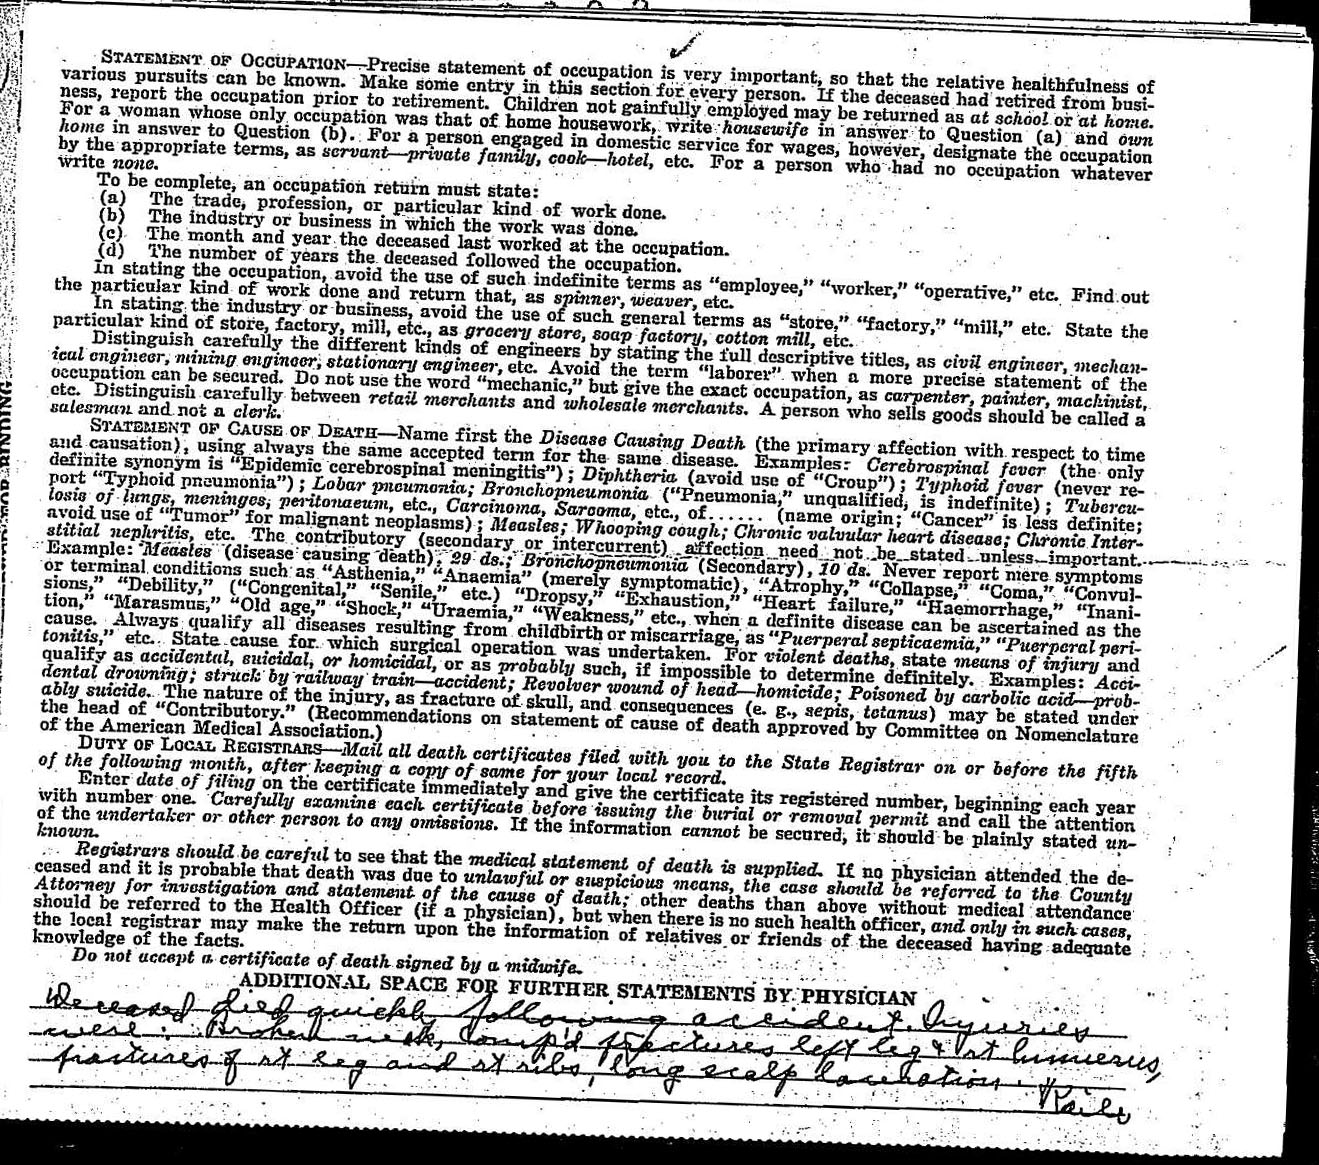 STATEMENT OF OCCUPATION—Precise statement of occupation is very important, so that the relative healthfulness of
various pursuits can be known. Make some entry in this section for every person. If the deceased had retired from busi-
ness, report the occupation prior to retirement. Children not gainfully employed may be returned as at school or at home.
For a woman whose only occupation was that of home housework, write housewife in answer to Question (a) and own
home in answer to Question (b). For a person engaged in domestic service for wages, however, designate the occupation
by the appropriate terms, as servant—private family, cook—hotel, etc. For a person who had no occupation whatever
write none.
To be complete, an occupation return must state:
(a) The trade, profession, or particular kind of work done.
(b) The industry or business in which the work was done.
(c) The month and year the deceased last worked at the occupation.
(d) The number of years the deceased followed the occupation.
In stating the occupation, avoid the use of such indefinite terms as "employee," "worker," "operative," etc. Find out
the particular kind of work done and return that, as spinner, weaver, etc.
In stating the industry or business, avoid the use of such general terms as "store," "factory," "mill," etc. State the
particular kind of store, factory, mill, etc., as grocery store, soap factory, cotton mill, etc.
Distinguish carefully the different kinds of engineers by stating the full descriptive titles, as civil engineer, mechan-
ical engineer, mining engineer, stationary engineer, etc. Avoid the term "laborer" when a more precise statement of the
occupation can be secured. Do not use the word "mechanic," but give the exact occupation, as carpenter, painter, machinist,
etc. Distinguish carefully between retail merchants and wholesale merchants. A person who sells goods should be called a
salesman and not a clerk.
STATEMENT OF CAUSE OF DEATH—Name first the Disease Causing Death (the primary affection with respect to time
and causation), using always the same accepted term for the same disease. Examples: Cerebrospinal fever (the only
definite synonym is "Epidemic cerebrospinal meningitis"); Diphtheria (avoid use of "Croup"); Typhoid fever (never re-
port "Typhoid pneumonia"); Lobar pneumonia; Bronchopneumonia ("Pneumonia," unqualified, is indefinite); Tubercu-
losis of lungs, meninges, peritonaeum, etc., Carcinoma, Sarcoma, etc., of...... (name origin; "Cancer" is less definite;
avoid use of "Tumor" for malignant neoplasms); Measles; Whooping cough; Chronic valvular heart disease; Chronic Inter-
stitial nephritis, etc. The contributory (secondary or intercurrent) affection need not be stated unless important.
Example: Measles (disease causing death), 29 ds.; Bronchopneumonia (Secondary), 10 ds. Never report mere symptoms
or terminal conditions such as "Asthenia," "Anaemia" (merely symptomatic), "Atrophy," "Collapse," "Coma," "Convul-
sions," "Debility," ("Congenital," "Senile," etc.) "Dropsy," "Exhaustion," "Heart failure," "Haemorrhage," "Inani-
tion," "Marasmus," "Old age," "Shock," "Uraemia," "Weakness," etc., when a definite disease can be ascertained as the
cause. Always qualify all diseases resulting from childbirth or miscarriage, as "Puerperal septicaemia," "Puerperal peri-
tonitis," etc. State cause for which surgical operation was undertaken. For violent deaths, state means of injury and
qualify as accidental, suicidal, or homicidal, or as probably such, if impossible to determine definitely. Examples: Acci-
dental drowning; struck by railway train—accident; Revolver wound of head—homicide; Poisoned by carbolic acid—prob-
ably suicide. The nature of the injury, as fracture of skull, and consequences (e. g., sepis, tetanus) may be stated under
the head of "Contributory." (Recommendations on statement of cause of death approved by Committee on Nomenclature
of the American Medical Association.)
DUTY OF LOCAL REGISTRARS—Mail all death certificates filed with you to the State Registrar on or before the fifth
of the following month, after keeping a copy of same for your local record.
Enter date of filing on the certificate immediately and give the certificate its registered number, beginning each year
with number one. Carefully examine each certificate before issuing the burial or removal permit and call the attention
of the undertaker or other person to any omissions. If the information cannot be secured, it should be plainly stated un-
known.
Registrars should be careful to see that the medical statement of death is supplied. If no physician attended the de-
ceased and it is probable that death was due to unlawful or suspicious means, the case should be referred to the County
Attorney for investigation and statement of the cause of death; other deaths than above without medical attendance
should be referred to the Health Officer (if a physician), but when there is no such health officer, and only in such cases,
the local registrar may make the return upon the information of relatives or friends of the deceased having adequate
knowledge of the facts.
Do not accept a certificate of death signed by a midwife.
ADDITIONAL SPACE FOR FURTHER STATEMENTS BY PHYSICIAN
Deceased died quickly following accident. Injuries
were: Broken neck, comp'd fractures left leg & rt humerus,
fractures of rt leg and rt ribs, long scalp laceration.
FOR BINDING